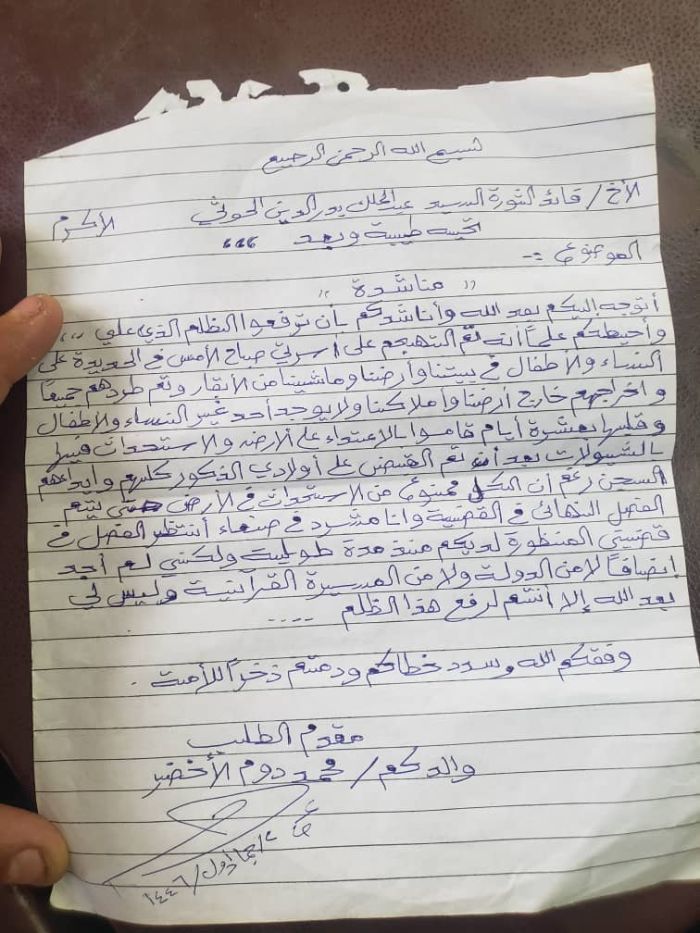 بسم الله الرحمن الرحيم
الأخ / قائد الثورة السيد عبدالملك بدر الدين الحوثي الأكرم
تحيه طيبة وبعد ،،،
الموضوع :-
" مناشدة "
أتوجه إليكم بعد الله وأناشدكم بأن ترفعوا الظلم الذي علي ،،،
وأحيطكم علماً أنه تم التهجم على أسرتي صباح الأمس في الحديدة على
النساء والأطفال في بيتنا وأرضنا وماشيتنا من الأبقار وتم طردهم جميعاً
واخراجهم خارج أرضنا وأملاكنا ولا يوجد أحد غير النساء والأطفال
وقبلها بعشرة أيام قاموا بالاعتداء على الارض والاستحداث فيها
بالشيولات بعد أن تم القبض على أولادي الذكور كلهم وايداعهم
السجن رغم أن الكل ممنوع من الاستحداث في الأرض حتى يتم
الفصل النهائي في القضية وانا مشرد في صنعاء أنتظر الفصل في
قضيتي المنظورة لديكم منذ مدة طويلة ولكنني لم أجد
إنصافاً لا من الدولة ولا من المسيرة القرآنية وليس لي
بعد الله إلا أنتم لرفع هذا الظلم ....
وفقكم الله وسدد خطاكم ودمتم ذخراً للأمة .
مقدم الطلب
والدكم / محمد دوم الأخضر
/ جماد أول / ١٤٤٦